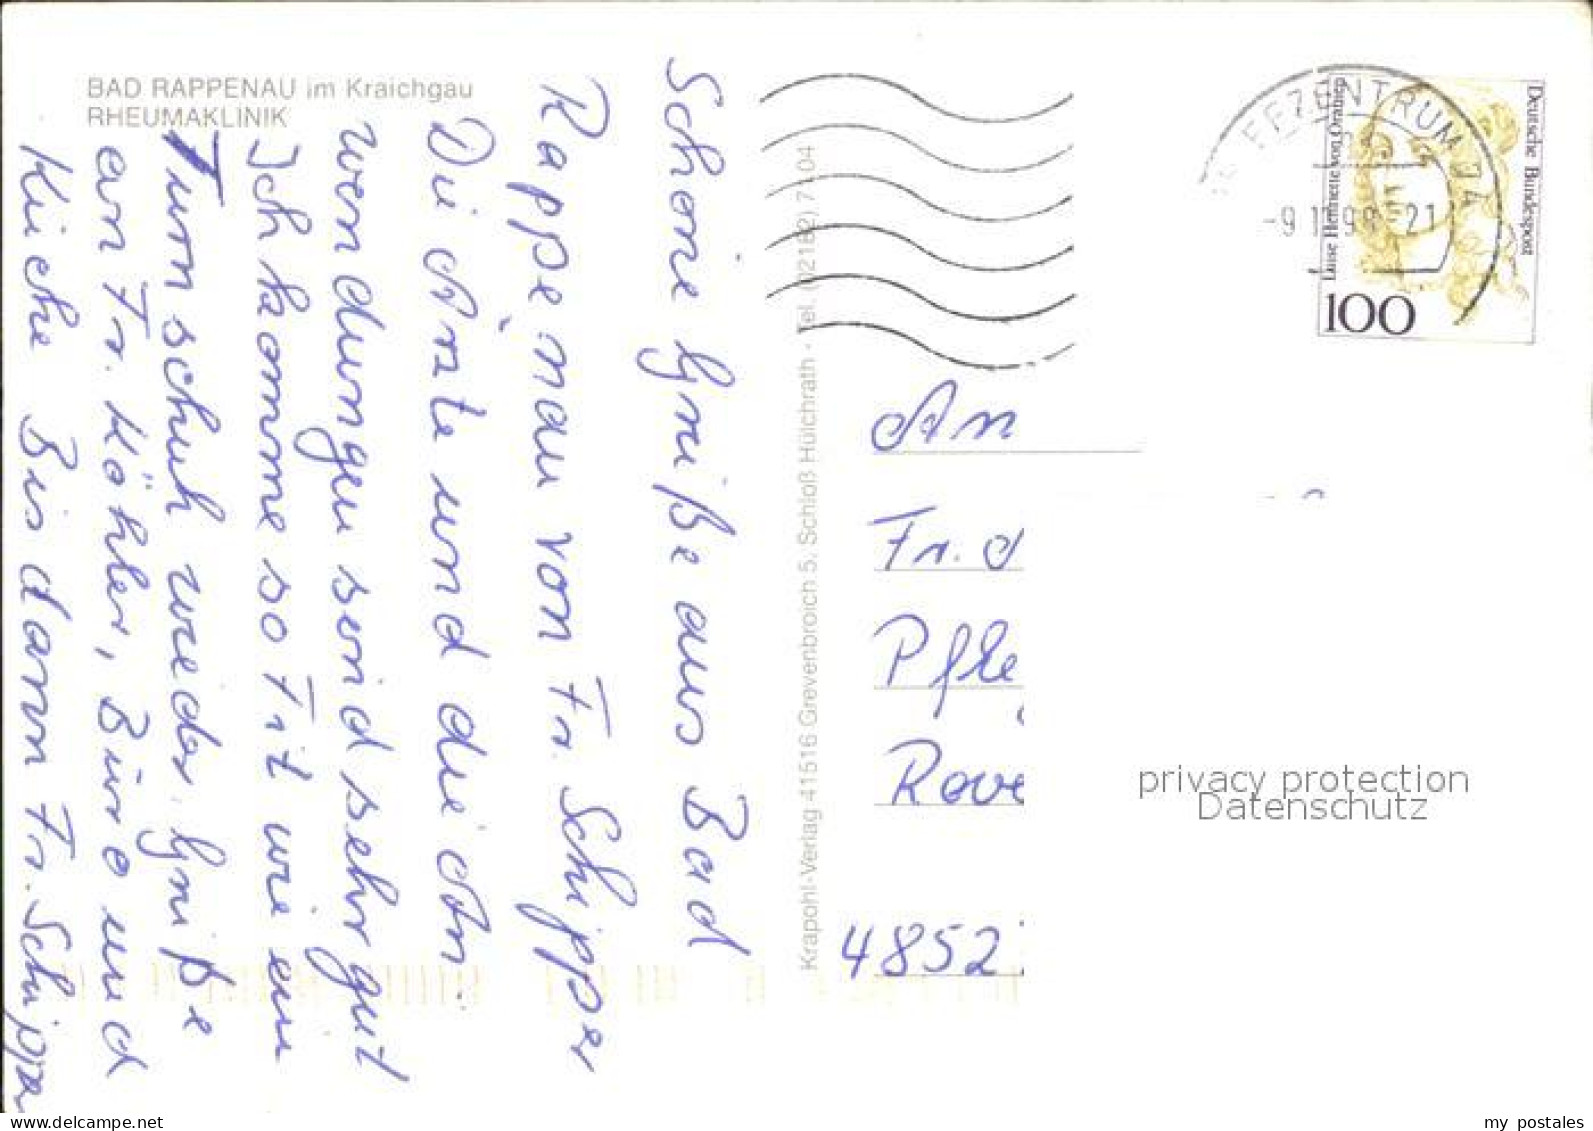 BAD RAPPENAU im Kraichgau
RHEUMAKLINIK
Schöne Grüße aus Bad
Rappenau von Fr. Schipper
Die Ärzte und die An-
wendungen sind sehr gut
Ich komme so fit wie ein
Turnschuh wieder. Grüße
an Fr. Köhler, Büro und
Küche Bis dann Fr. Schipper
Krapohl-Verlag 41516 Grevenbroich 5, Schloß Hülchrath - Tel. (02182) 7 04
BRIEFZENTRUM 74
-9.11.98-21
Deutsche Bundespost
Luise Henriette von Oranien
100
An
Fr. A
Pfle
Rove
4852
privacy protection
Datenschutz
my postales